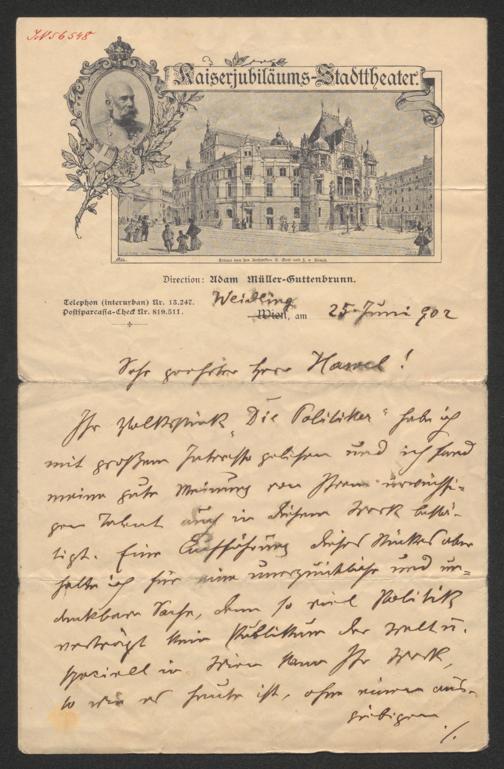 JN 56548
Kaiserjubiläums-Stadttheater.
Direction: Adam Müller-Guttenbrunn.
Telephon (interurban) Nr. 13.247.
Postsparcassa-Check Nr. 819.511.
Weidling
Wien, am 25. Juni 902
Sehr geehrter Herr Hawel!
Ihr Volksstück „Die Politiker“ habe ich
mit großem Interesse gelesen und ich fand
meine gute Meinung von Ihrem urwüchsi-
gen Talent auch in diesem Werk bestä-
tigt. Eine Aufführung dieses Stückes aber
halte ich für eine und un-
denkbare Sache, denn so viel Politik
verträgt kein Publikum der Welt u.
speziell in Wien kann Ihr Werk,
so wie es heute ist, ohne einen aus-
giebigen ./.